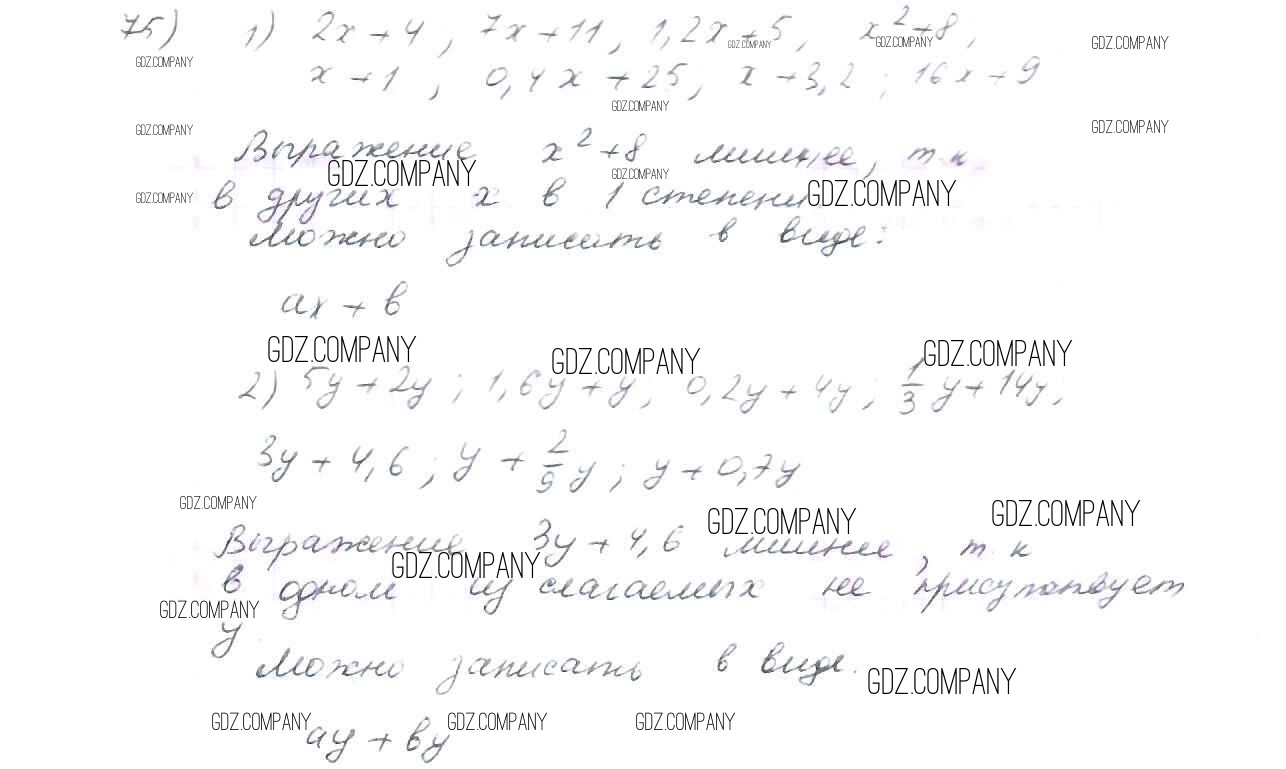 75) 1) 2x+4, 7x+11, 1,2x+5, x²+8,
GDZ.COMPANY GDZ.COMPANY GDZ.COMPANY GDZ.COMPANY
x+1, 0,4x+25, x+3,2; 16x+9
GDZ.COMPANY
GDZ.COMPANY GDZ.COMPANY
Выражение x²+8 лишнее, т.к
GDZ.COMPANY GDZ.COMPANY
в других x в 1 степени
GDZ.COMPANY GDZ.COMPANY
можно записать в виде:
ax+в
GDZ.COMPANY GDZ.COMPANY GDZ.COMPANY
2) 5y+2y; 1,6y+y; 0,2y+4y; 1/3 y+14y;
3y+4,6; y+2/9 y; y+0,7y
GDZ.COMPANY GDZ.COMPANY GDZ.COMPANY
Выражение 3y+4,6 лишнее, т.к
GDZ.COMPANY
в одном из слагаемых не присутствует
GDZ.COMPANY
y.
Можно записать в виде.
GDZ.COMPANY
GDZ.COMPANY GDZ.COMPANY GDZ.COMPANY
ay+вy